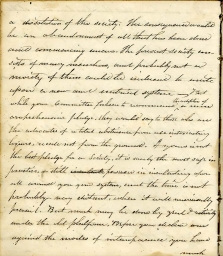 a dissolution of the society. The consequence would
be an abandonment of all that has been done
and commencing anew. The present society con-
sists of many, and probably not a
majority of them could be inclined to unite
upon a new and untried system
while your Committee to recommend a more
comprehensive pledge, they would say to those who are
the advocates of a total abstinence from all intoxicating
liquors, recede not from the ground. If yours is not
the best pledge for a society, it is surely the most safe in
practice,
all around you your system, and the time is not
probably very distant, when it will universally
prevail. But much may be done by great activity
under the old platform. Before you declare war
against the modes of intemperance you have
much